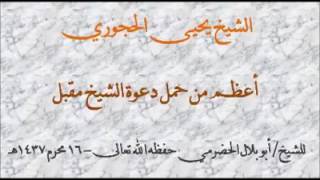 الشيخ يحيى الحجوري
أعظم من حمل دعوة الشيخ مقبل
للشيخ/أبو بلال الحضرمي حفظه الله تعالى - ١٦ محرم ١٤٣٧هـ